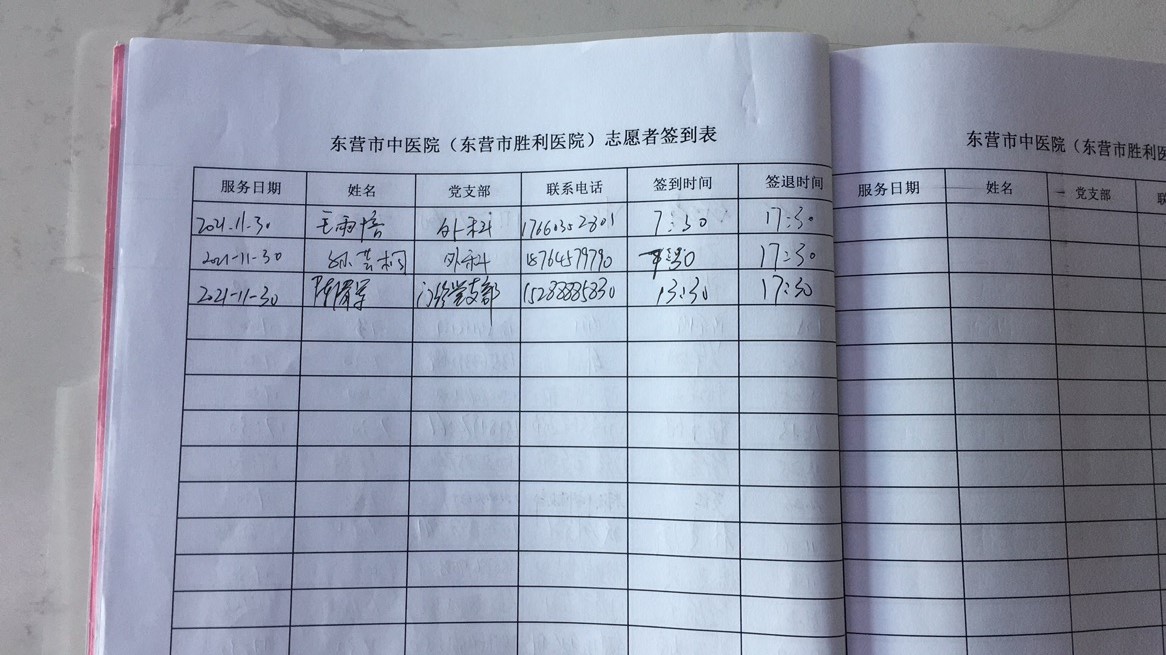 东营市中医院（东营市胜利医院）志愿者签到表
服务日期 姓名 党支部 联系电话 签到时间 签退时间
2021-11-30 王雨培 外科 17660352801 7:30 17:30
2021-11-30 外科 15764579790 7:30 17:30
2021-11-30 门诊党支部 15288885830 13:30 17:30
东营市中医院（东营市胜利医
服务日期 姓名 党支部 联